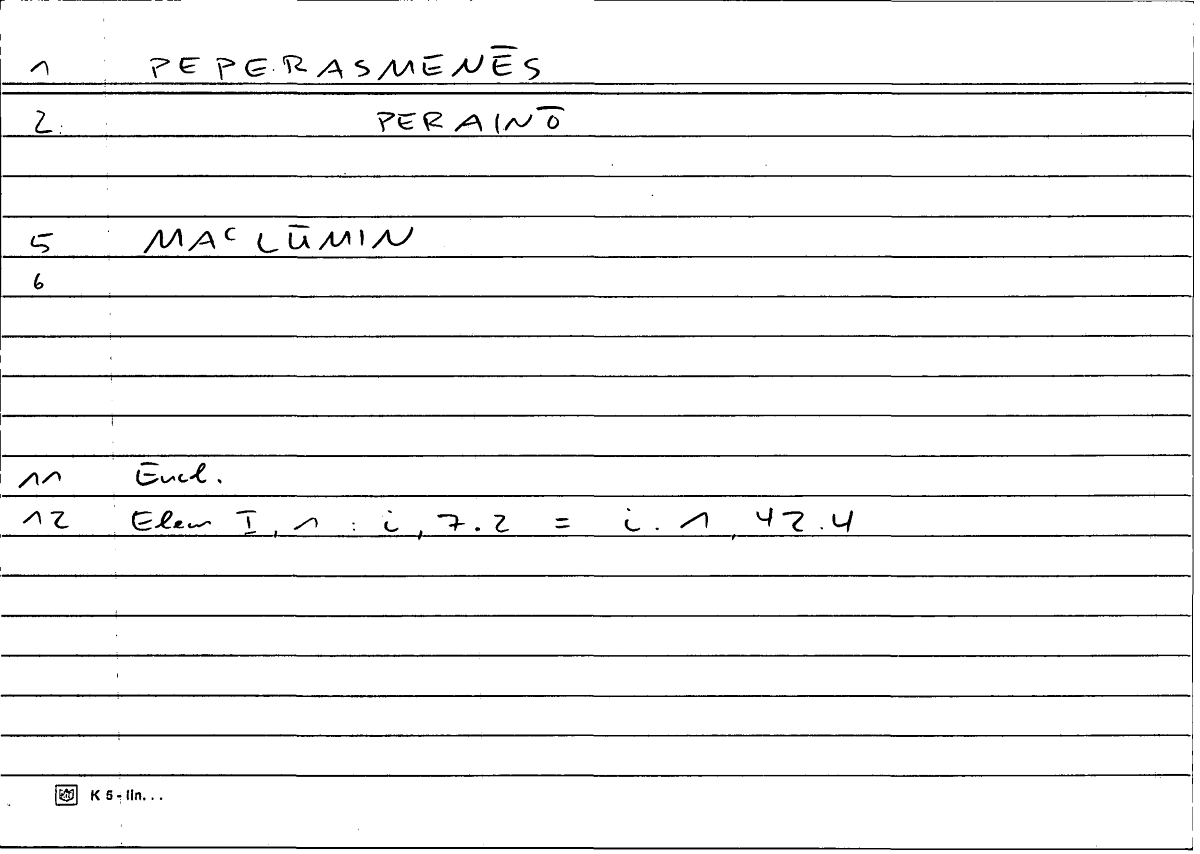 1 PEPERASMENĒS
2. PERAINŌ
5 MAᶜLŪMIN
6
11 Eucl.
12 Elem I, 1 : i, 7.2 = i. 1, 42.4
K 5 - lin...